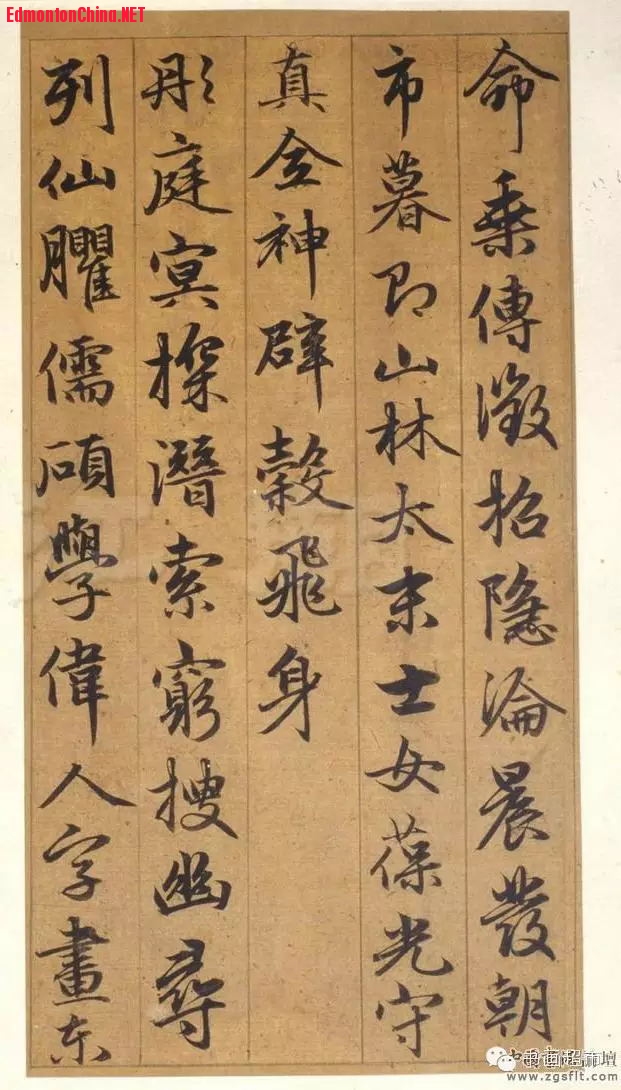 EdmontonChina.NET
命乘傳徵招隱淪晨發朝
市暮即山林太末士女葆光守
真全神辟穀飛身
彤庭冥探潛索窮搜幽尋
列仙臞儒碩學偉人字畫東
www.zgsflt.com